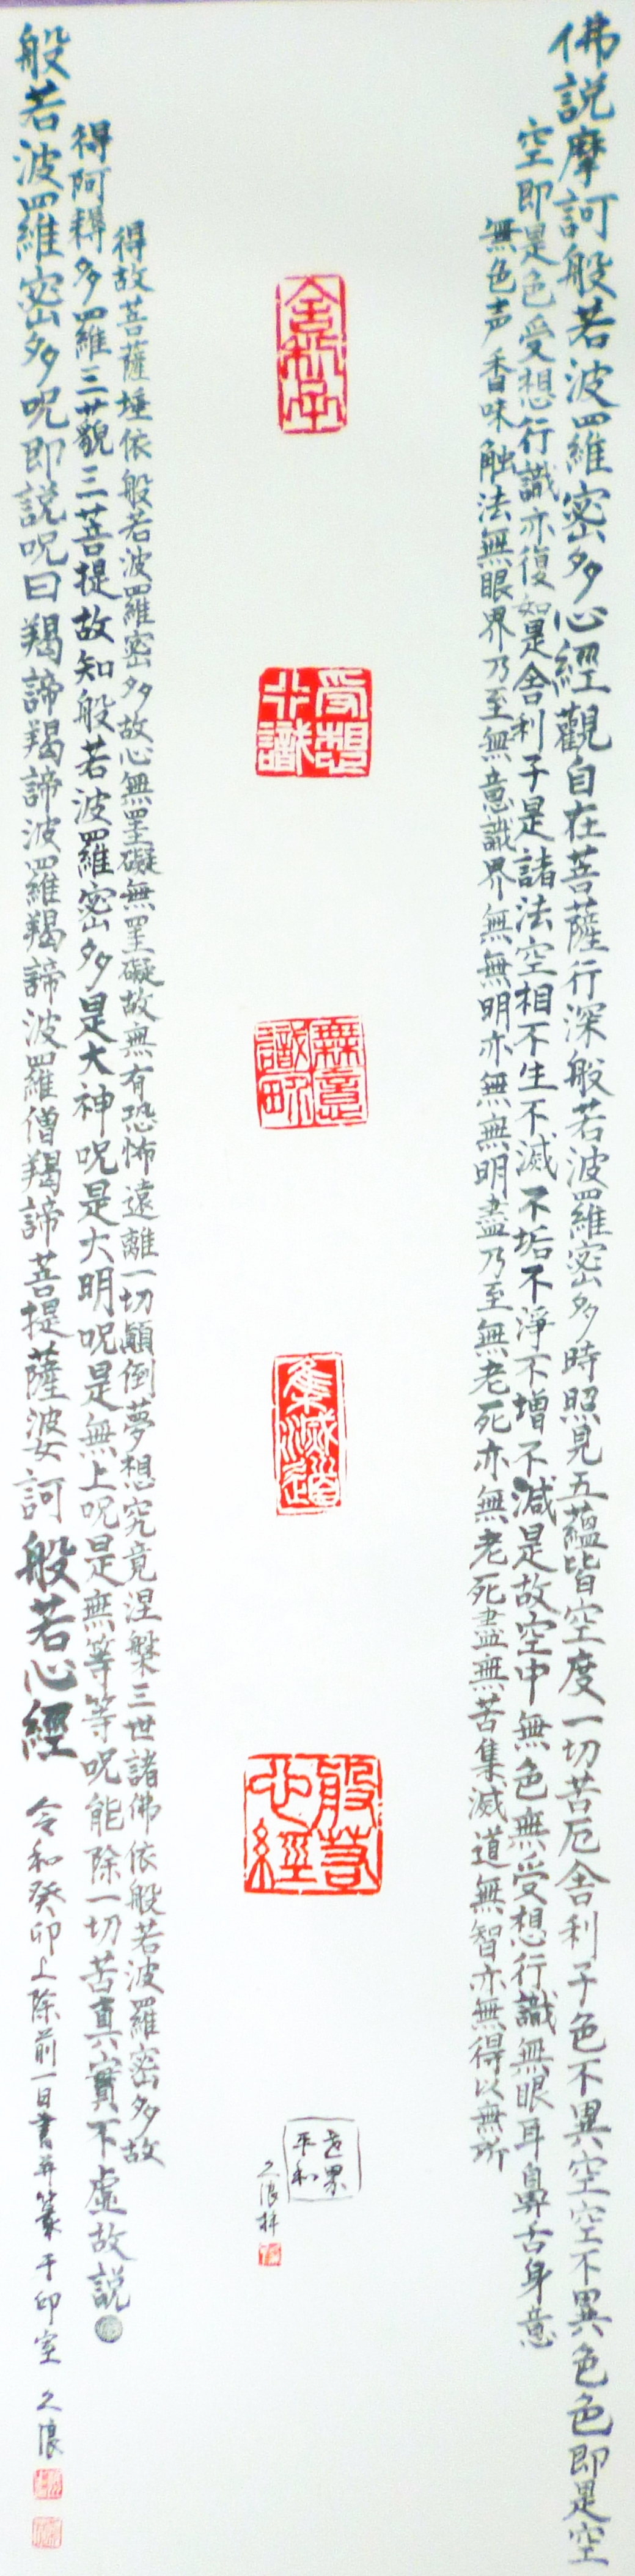 佛説摩訶般若波羅維密多心經觀自在菩薩行深般若波羅維密多時照見五蘊皆空度一切苦厄舎利子色不異空空不異色色即是空
空即是色受想行識亦復如是舎利子是諸法空相不生不滅不垢不淨不増不減是故空中無色無受想行識無眼耳鼻舌身意
無色声香味触法無眼界乃至無意識界無無明亦無無明盡乃至無老死亦無老死盡無苦集滅道無智亦無得以無所
受想行識
無意識界
集滅道
般若心經
世界平和
久浪拝
得故菩薩埵依般若波羅密多故心無罣礙無罣礙故無有恐怖遠離一切顛倒夢想究竟涅槃三世諸佛依般若波羅密多故
得阿耨多羅三藐三菩提故知般若波羅密多是大神呪是大明呪是無上呪是無等等呪能除一切苦真實不虚故説
般若波羅維密多呪即説呪曰羯諦羯諦波羅羯諦波羅僧羯諦菩提薩婆訶般若心經
令和癸卯上除前一日書并篆于印室 久浪